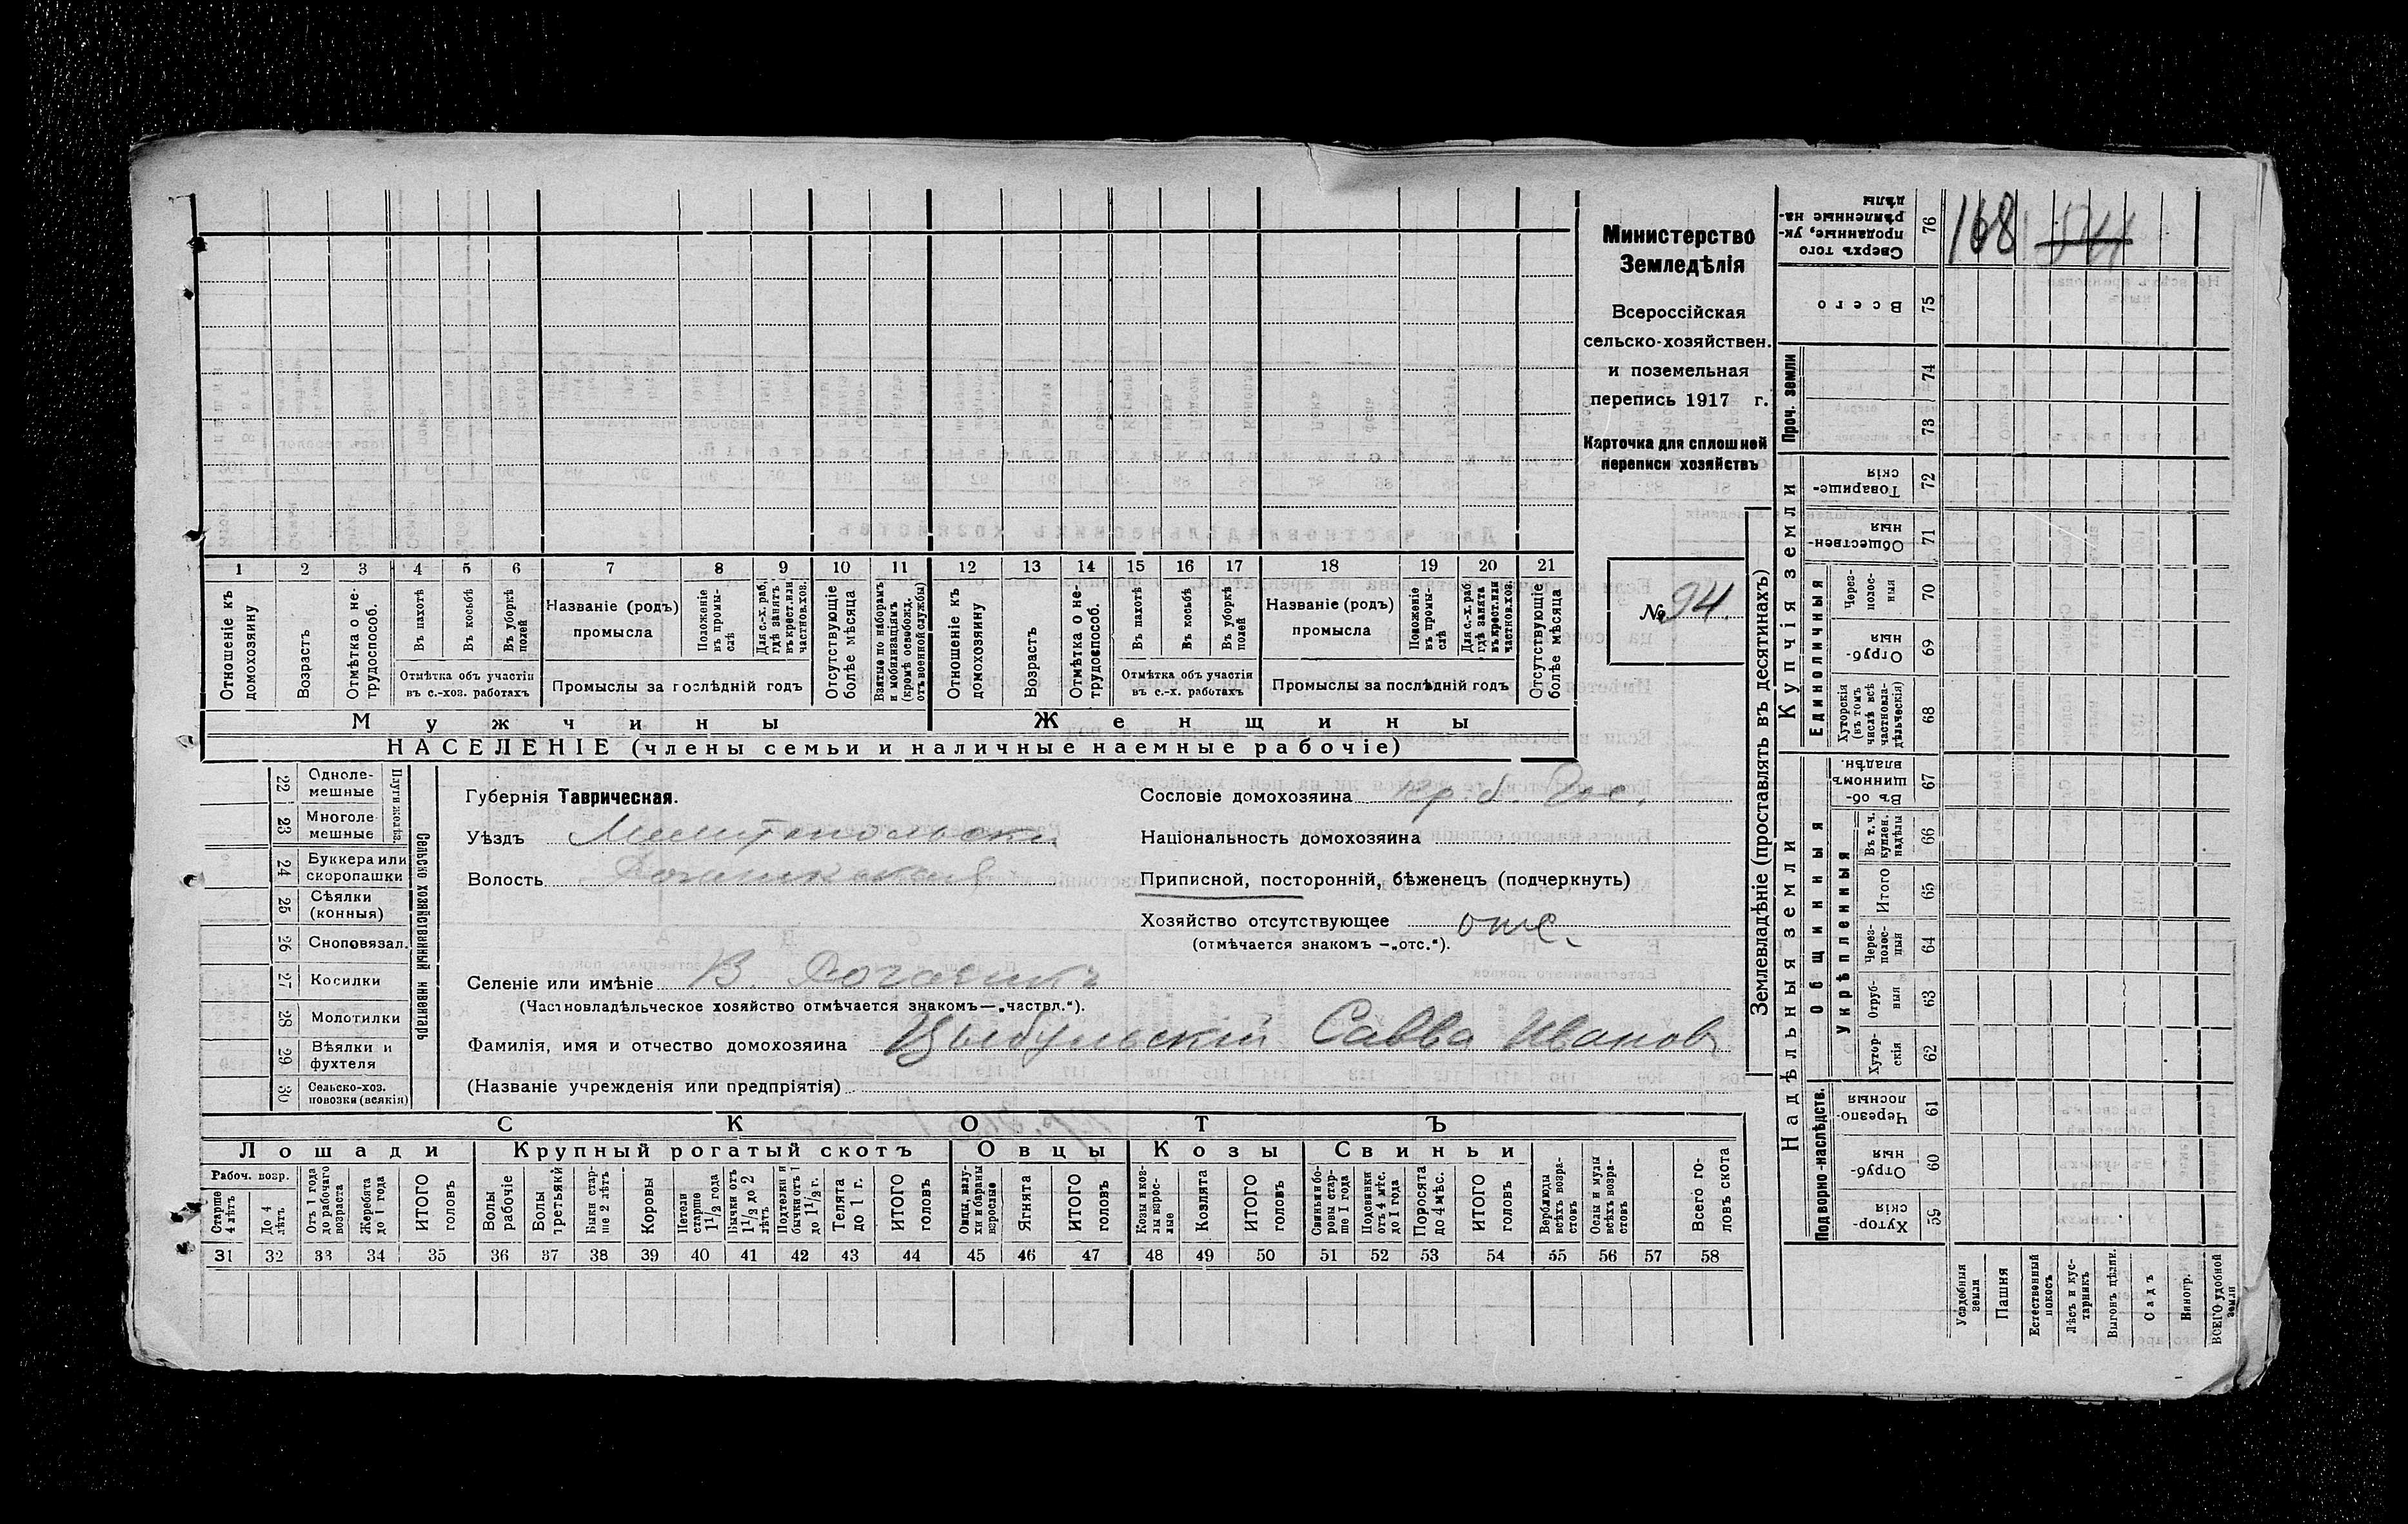 Министерство
Земледѣлія
Всероссійская
сельско-хозяйствен.
и поземельная
перепись 1917 г.
Карточка для сплошной
переписи хозяйствъ
№ 94.
168 544
1 2 3 4 5 6 7 8 9 10 11 12 13 14 15 16 17 18 19 20 21
Отношеніе къ домохозяину
Возрастъ
Отмѣтка о нетрудоспособ.
Въ пахотѣ
Въ косьбѣ
Въ уборкѣ полей
Отмѣтка объ участіи въ с.-хоз. работахъ
Названіе (родъ) промысла
Положеніе въ промыслѣ
Для с.-х. раб. гдѣ занятъ въ крест. или частнов. хоз.
Промыслы за послѣдній годъ
Отсутствующіе болѣе мѣсяца
Взятые по наборамъ и мобилизаціямъ (кромѣ освобожд. отъ военной службы)
Отношеніе къ домохозяину
Возрастъ
Отмѣтка о нетрудоспособ.
Въ пахотѣ
Въ косьбѣ
Въ уборкѣ полей
Отмѣтка объ участіи въ с.-х. работахъ
Названіе (родъ) промысла
Положеніе въ промыслѣ
Для с.-х. раб. гдѣ занята въ крест. или частнов. хоз.
Промыслы за послѣдній годъ
Отсутствующіе болѣе мѣсяца
Мужчины Женщины
НАСЕЛЕНІЕ (члены семьи и наличные наемные рабочіе)
22 Одноле-мешные
23 Многоле-мешные
Плуги желѣз.
24 Буккера или скоропашки
25 Сѣялки (конныя)
26 Сноповязал.
27 Косилки
28 Молотилки
29 Вѣялки и фухтеля
30 Сельско-хоз. повозки (всякія)
Сельско хозяйственный инвентарь
Губернія Таврическая.
Уѣздъ Мелитопольскі.
Волость
Сословіе домохозяина кр. б.
Національность домохозяина
Приписной, посторонній, бѣженецъ (подчеркнуть)
Хозяйство отсутствующее отс.
(отмѣчается знакомъ —„отс.“).
Селеніе или имѣніе В. Рогачикъ
(Частновладѣльческое хозяйство отмѣчается знакомъ—„частвл.“).
Фамилія, имя и отчество домохозяина Цыбульскій Савва Иванов
(Названіе учрежденія или предпріятія)
СКОТЪ
Лошади Крупный рогатый скотъ Овцы Козы Свиньи
Рабоч. возр.
Старше 4 лѣтъ
До 4 лѣтъ
Отъ 1 года до рабочаго возраста
Жеребята до 1 года
ИТОГО головъ
Волы рабочіе
Волы третьяки
Быки старше 2 лѣтъ
Коровы
Нетели старше 1 1/2 года
Бычки отъ 1 1/2 до 2 лѣтъ
Подтелки и бычки отъ 1 до 1 1/2 г.
Телята до 1 г.
ИТОГО головъ
Овцы, валухи и бараны взрослые
Ягнята
ИТОГО головъ
Козы и козлы взрослые
Козлята
ИТОГО головъ
Свиньи и боровы старше 1 года
Подсвинки отъ 4 мѣс. до 1 года
Поросята до 4 мѣс.
ИТОГО головъ
Верблюды всѣхъ возрастовъ
Ослы и мулы всѣхъ возрастовъ
Всего головъ скота
31 32 33 34 35 36 37 38 39 40 41 42 43 44 45 46 47 48 49 50 51 52 53 54 55 56 57 58
Землевладѣніе (проставлять въ десятинахъ)
Надѣльныя земли
Купчія земли
Проч. земли
Подворно-наслѣдств.
Общинныя
Укрѣпленныя
Единоличныя
76 Сверхъ того проданные, укрѣпленные надѣлы
75 Всего
74
73
72 Товарище-скія
71 Обществен-ныя
70 Через-полос-ныя
69 Отруб-ныя
68 Хуторскія (въ томъ числѣ всѣ частновла-дѣльческія)
67 Въ об-щинномъ владѣн.
66 Въ т. ч. куплен. надѣлы
65 Итого
64 Через-полос-ныя
63 Отруб-ныя
62 Хутор-скія
61 Черезпо-лосныя
60 Отруб-ныя
59 Хутор-скія
Усадебныя земли
Пашня
Естественный покосъ
Лѣсъ и кус-тарникъ
Выгонъ цѣлин.
Садъ
Виногр.
ВСЕГО удобной земли